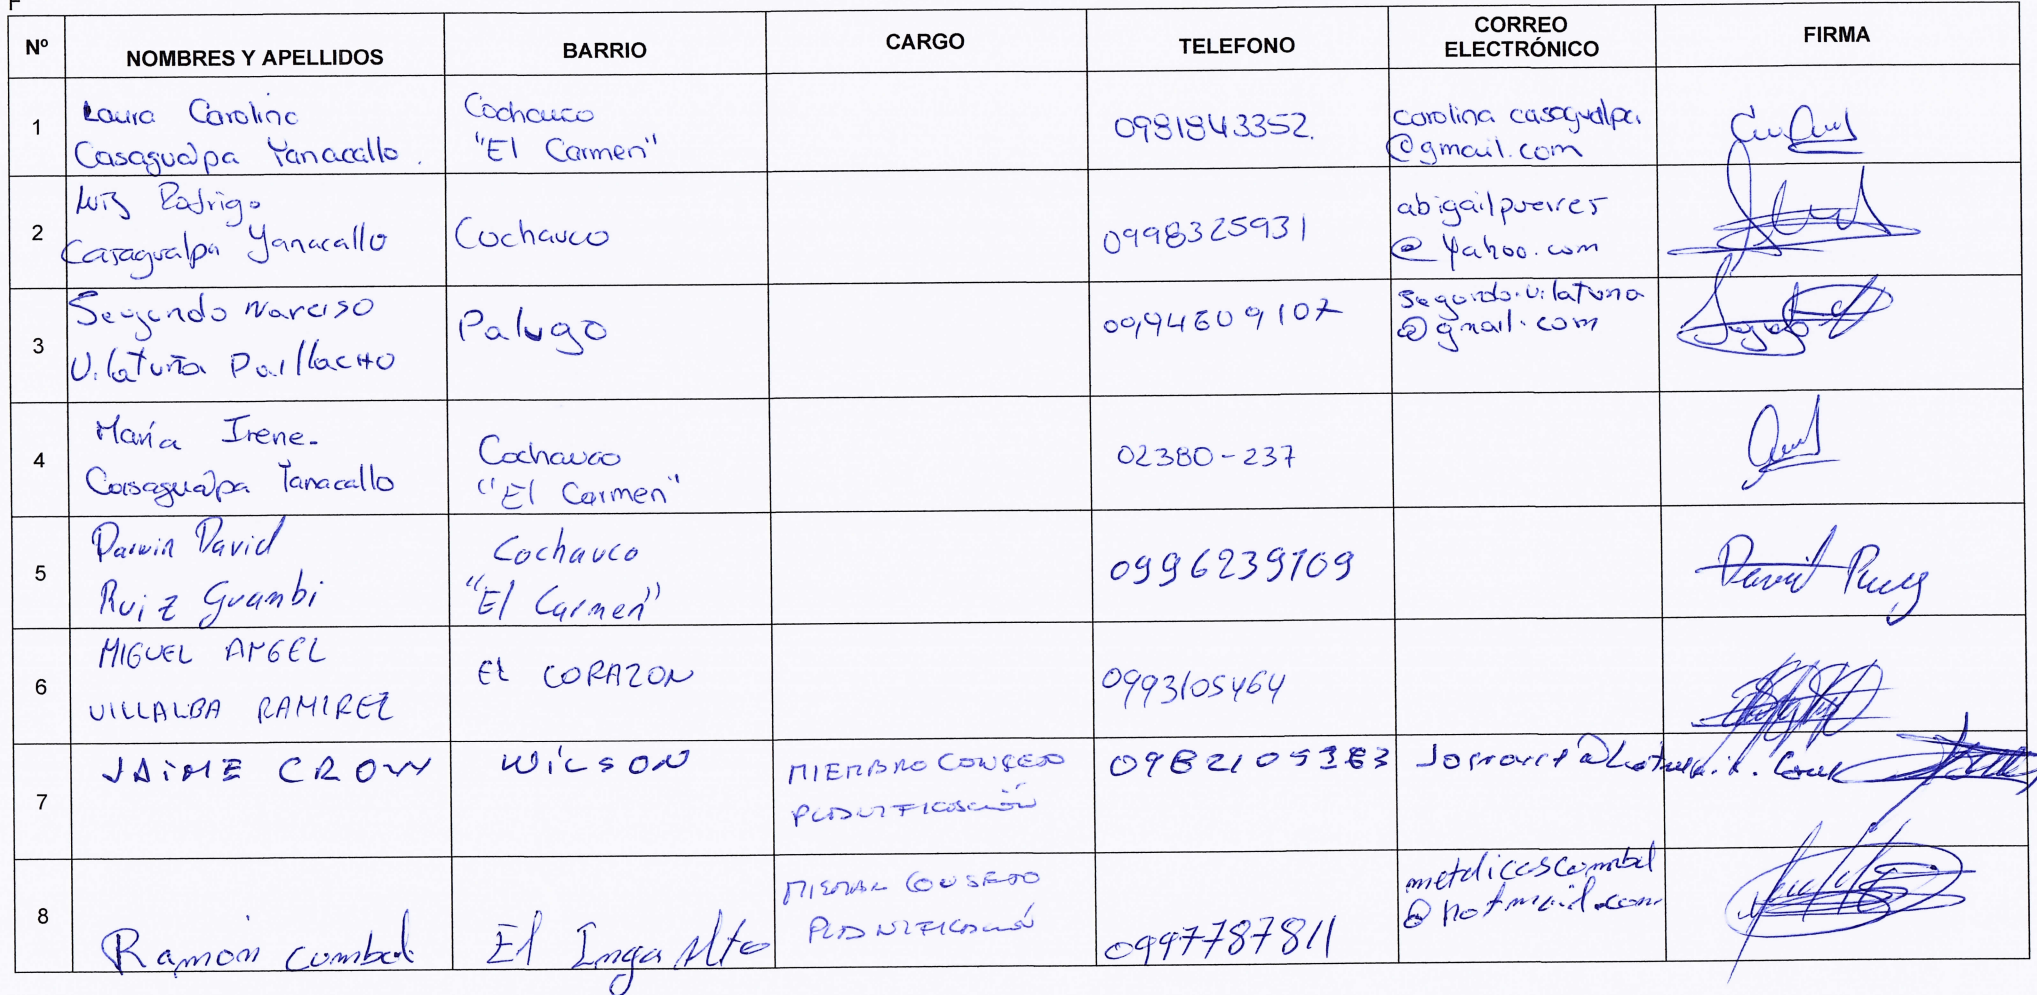 Nº NOMBRES Y APELLIDOS BARRIO CARGO TELEFONO CORREO ELECTRÓNICO FIRMA
1
Laura Carolina
Casagualpa Yanacallo.
Cochauco
"El Carmen"
0981843352.
carolina casagualpa
@gmail.com
2
Luis Rodrigo
Casagualpa Yanacallo
Cochauco
0998325931
abigailpuerres
@yahoo.com
3
Segundo Narciso
Vilatuña Paillacho
Palugo
0994609107
segundo.vilatuna
@gmail.com
4
María Irene
Casagualpa Yanacallo
Cochauco
"El Carmen"
02380-237
5
Darwin David
Ruiz Guambi
Cochauco
"El Carmen"
0996239109
David Ruiz
6
MIGUEL ANGEL
VILLALBA RAMIREZ
EL CORAZON
0993105464
7
JAIME CROW
WILSON
MIEMBRO CONSEJO
PLANIFICACIÓN
8
Ramón Cumbal
El Inga Alto
CONSEJO
PLANIFICACIÓN
0997787811
metalicascumbal
@hotmail.com